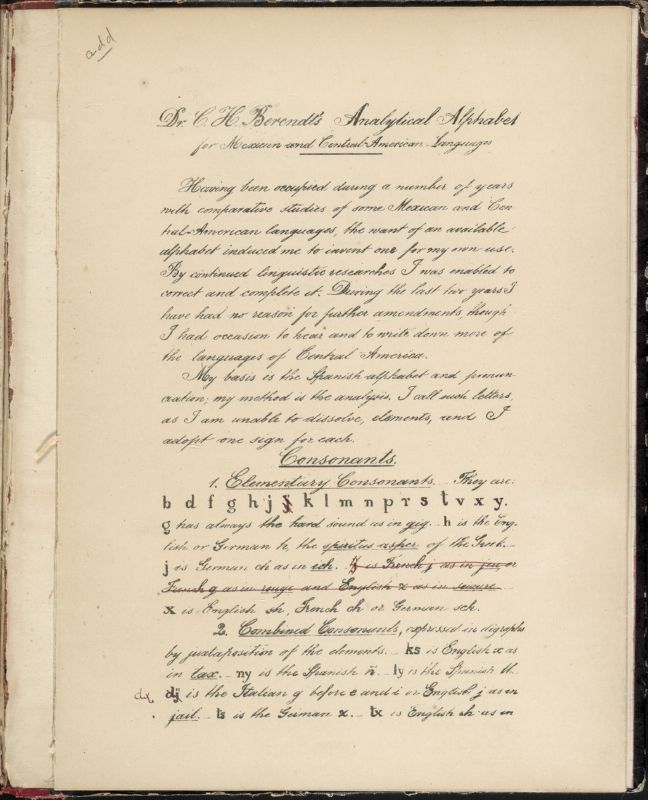 add
Dr. C. H. Berendt's Analytical Alphabet
for Mexican and Central-American Languages
Having been occupied during a number of years
with comparative studies of some Mexican and Cen
tral-American languages, the want of an available
alphabet induced me to invent one for my own use.
By continued linguistic researches I was enabled to
correct and complete it. During the last two years I
have had no reason for further amendments though
I had occasion to hear and to write down more of
the languages of Central America.
My basis is the Spanish alphabet and pronun-
ciation; my method is the analysis. I call such letters,
as I am unable to dissolve, elements, and I
adopt one sign for each.
Consonants.
1. Elementary Consonants. They are:
b d f g h j k l m n p r s t v x y.
g has always the hard sound as in gug. h is the Eng-
lish or German h, the spiritus asper of the Greek.
j is German ch as in ich. is French j as in jeu or
French g as in rouge and English z as in seizure
x is English sh, French ch or German sch.
2. Combined Consonants, expressed in digraphs
by juxtaposition of the elements. ks is English x as
in tax. ny is the Spanish ñ. ly is the Spanish ll.
dx is the Italian g before e and i or English j as in
jail. ts is the German z. tx is English ch as in